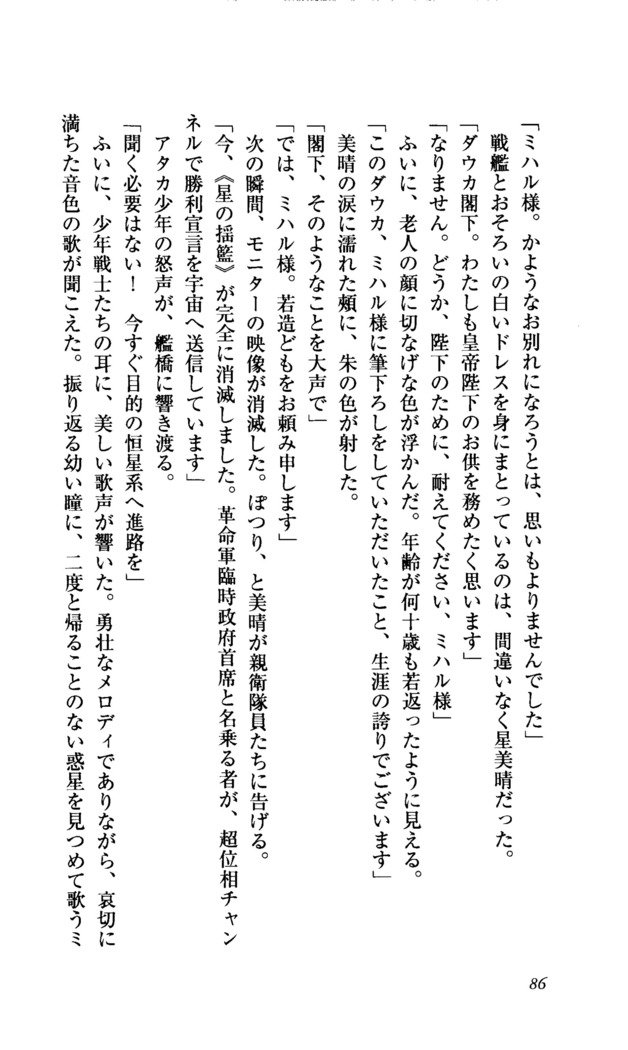 「ミハル様。かようなお別れになろうとは、思いもよりませんでした」
戦艦とおそろいの白いドレスを身にまとっているのは、間違いなく星美晴だった。
「ダウカ閣下。わたしも皇帝陛下のお供を務めたく思います」
「なりません。どうか、陛下のために、耐えてください、ミハル様」
ふいに、老人の顔に切なげな色が浮かんだ。年齢が何十歳も若返ったように見える。
「このダウカ、ミハル様に筆下ろしをしていただいたこと、生涯の誇りでございます」
美晴の涙に濡れた頰に、朱の色が射した。
「閣下、そのようなことを大声で」
「では、ミハル様。若造どもをお頼み申します」
次の瞬間、モニターの映像が消滅した。ぽつり、と美晴が親衛隊員たちに告げる。
「今、《星の揺籃》が完全に消滅しました。革命軍臨時政府首席と名乗る者が、超位相チャン
ネルで勝利宣言を宇宙へ送信しています」
アタカ少年の怒声が、艦橋に響き渡る。
「聞く必要はない！　今すぐ目的の恒星系へ進路を」
ふいに、少年戦士たちの耳に、美しい歌声が響いた。勇壮なメロディでありながら、哀切に
満ちた音色の歌が聞こえた。振り返る幼い瞳に、二度と帰ることのない惑星を見つめて歌うミ
86